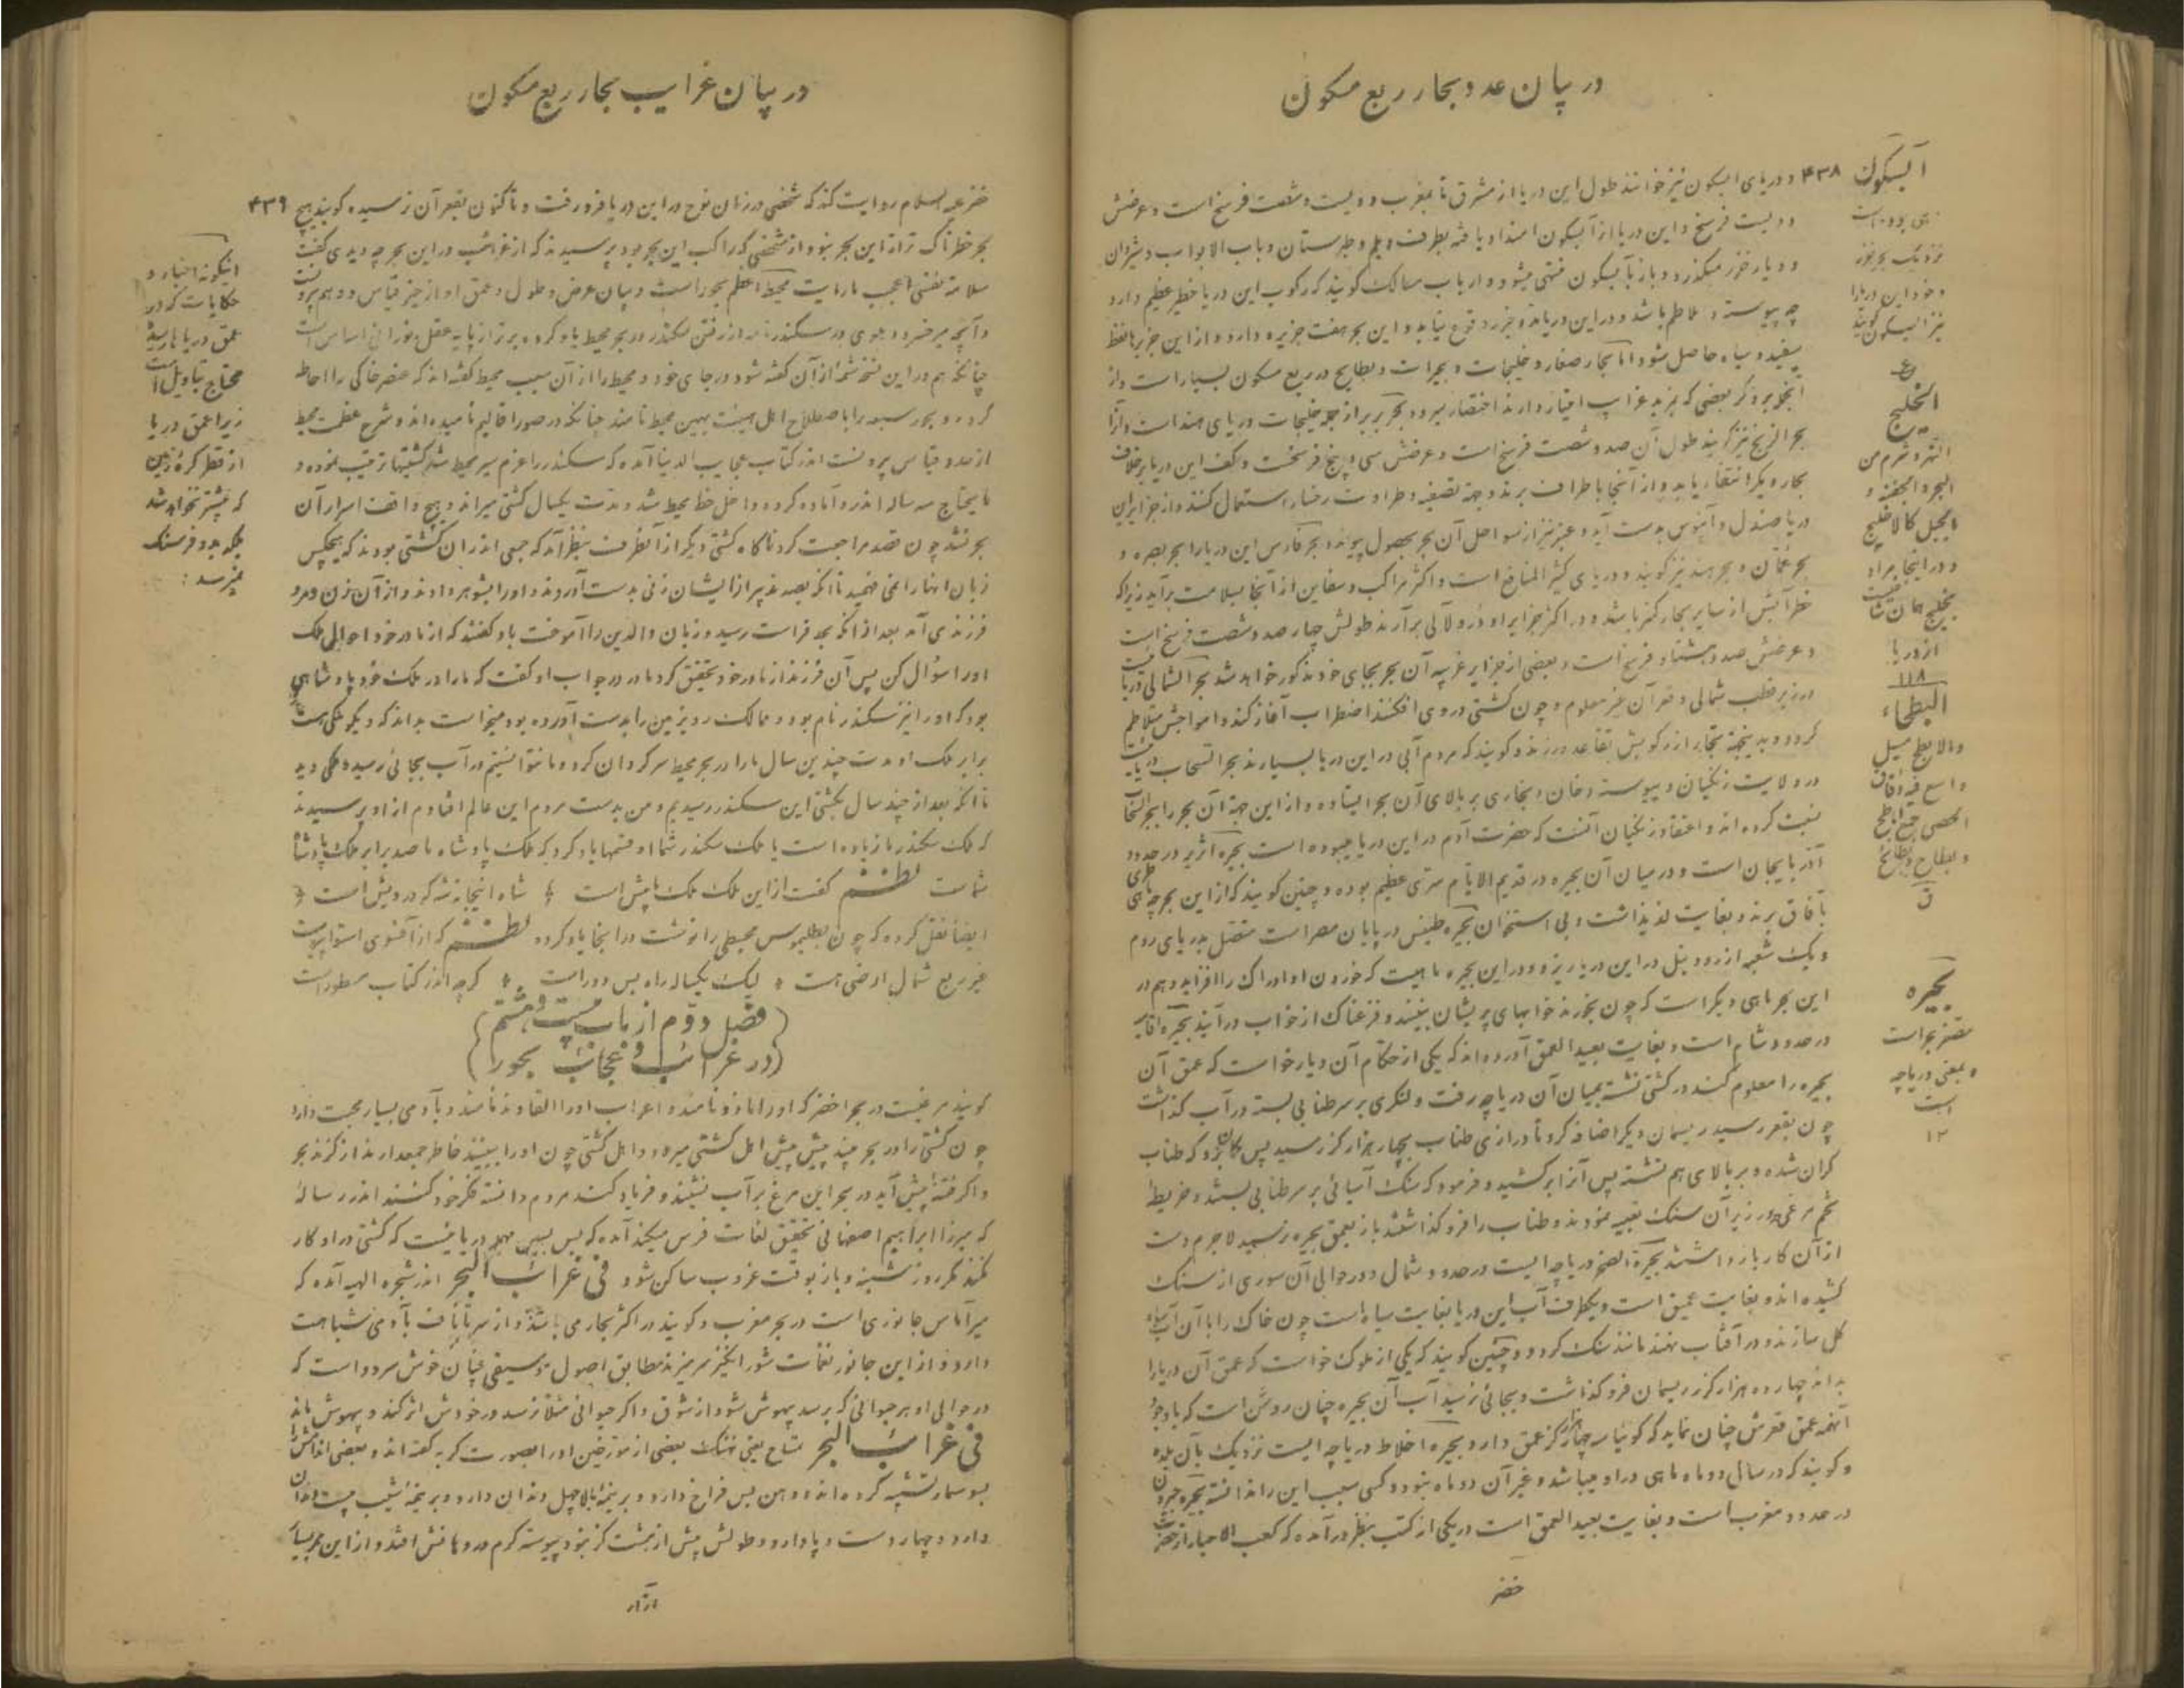 در بیان عدد بحار ربع مسکون
۴۳۸
و دریای ابسکون نیز خوانند طول این دریا از مشرق تا بمغرب دویست و شصت فرسخ است و عرضش
دویست فرسخ و این دریا از آبسکون امتداد یافته بطرف دیلم و طبرستان و باب الابواب و شیروان
و دیار خزر میگذرد و باز بآبسکون منتهی میشود و ارباب مسالک گویند که رکوب این دریا خطر عظیم دارد
چه پیوسته در تلاطم باشد و در این دریا مد و جزر وقوع نیابد و این بحر هفت جزیره دارد و از این جزیرها نفط
سفید و سیاه حاصل شود اما بحار صغار و خلیجات و بحیرات و بطایح در ربع مسکون بسیار است و از
آنجمله بذکر بعضی که بمزید غرایب امتیاز دارند اختصار میرود بحر بربر از جمله خلیجات دریای هند است و آنرا
بحر الزنج نیز گویند طول آن صد و شصت فرسخ است و عرضش سی و پنج فرسخست و کف این دریا برخلاف
بحار دیگر انعقاد یابد و از آنجا باطراف برند و جهة تصفیه و طراوت رخسار استعمال کنند و از جزایر این
دریا صندل و آبنوس بدست آید و عنبر نیز از سواحل آن بحر بحصول پیوندد بحر فارس این دریا را بحر بصره و
بحر عمان و بحر هند نیز گویند و دریای کثیر المنافع است و اکثر مراکب و سفاین از آنجا بسلامت برآید زیرا که
خطر آبش از سایر بحار کمتر باشد و در اکثر جزایر او در و لآلی برآرند طولش چهار صد و شصت فرسخ است
و عرضش صد و هشتاد فرسخ است و بعضی از جزایر غریبه آن بحر بجای خود مذکور خواهد شد بحر الشمالی دریائیست
در زیر قطب شمالی و قعر آن غیر معلوم و چون کشتی در وی افکنند اضطراب آغاز کند و امواجش متلاطم
گردد و بدینجهة تجار از رکوبش تقاعد ورزند و گویند که مردم آبی در این دریا بسیارند بحر السحاب دریائیست
در ولایت زنگیان و پیوسته دخان و بخاری بر بالای آن بحر ایستاده و از این جهة آن بحر را بحر السحاب
نسبت کرده اند و اعتقاد زنگیان آنست که حضرت آدم در این دریا میبوده است بحیره آذر در حدود
آذربایجان است و در میان آن بحیره در قدیم الایام سدی عظیم بوده و چنین گویند که از این بحیره ماهی طری
بآفاق برند و بغایت لذیذ است و بی استخوان بحیره طنیس در پایان مصر است متصل بدریای روم
و یک شعبه از رود نیل در این دریا ریزد و در این بحیره ماهیست که خوردن او ادراک را افزاید و هم در
این بحر ماهی دیگر است که چون بخورند خوابهای پریشان بینند و فزعناک از خواب درآیند بحیره افامیه
در حدود شام است و بغایت بعید العمق آورده اند که یکی از حکام آن دیار خواست که عمق آن
بحیره را معلوم کند در کشتی نشسته بمیان آن دریاچه رفت و لنگری بر سر طنابی بسته در آب گذاشت
چون بقعر رسید ریسمان دیگر اضافه کرد تا درازی طناب بچهار هزار گز رسید پس گمان برد که طناب
گران شده و بر بالای هم نشسته پس آنرا برکشید و فرمود که سنگ آسیائی بر سر طنابی بستند و خریطه
تخم مرغی در زیر آن سنگ تعبیه نمودند و طناب را فرو گذاشتند باز بعمق بحیره نرسید لاجرم دست
از آن کار بازداشتند بحیرة الصخر دریاچه ایست در حدود شمال و در حوالی آن سوری از سنگ
کشیده اند و بغایت عمیق است و یکطرف آب این دریا بغایت سیاه است چون خاک را با آن آب سیاه
گل سازند و در آفتاب نهند مانند سنگ گردد و چنین گویند که یکی از ملوک خواست که عمق آن دریا را
بداند چهارده هزار گز ریسمان فرو گذاشت و بجائی نرسید آب آن بحیره چنان روشن است که با وجود
آنهمه عمق قعرش چنان نماید که گوئیا سه چهار گز عمق دارد بحیره اخلاط دریاچه ایست نزدیک بآن بلده
و گویند که در سال دو ماه ماهی در او میباشد و غیر آن دو ماه نبود و کسی سبب این را ندانسته بحیره جیرون
در حدود مغرب است و بغایت بعید العمق است در یکی از کتب بنظر درآمده که کعب الاحبار از حضرت
خضر
آبسکون
دهی بوده است
نزدیک بحر خزر
و خود این دریا را
نیز ابسکون گویند
الخلیج
النهر و شرم من
البحر و الجفنة و
الحبل کالاخلیج
و در اینجا مراد
بخلیج همان شاخیست
از دریا
۱۱۸
البطحاء
والابطح مسیل
واسع فیه دقاق
الحصی جمع اباطح
و بطاح و بطائح
ق
بحیره
مصغر بحر است
بمعنی دریاچه
است
۱۲
در بیان غرایب بحار ربع مسکون
۴۳۹
خضر علیه السلام روایت کند که شخصی در زمان نوح در این دریا فرو رفت و تا کنون بقعر آن نرسیده گویند هیچ
بحر خطرناک تر از این بحر نبود و از شخصی که راکب این بحر بود پرسیدند که از غرائب در این بحر چه دیدی گفت
سلامة نفسی اعجب ما رایت محیط اعظم بحور است و بیان عرض و طول و عمق او از حیز قیاس و وهم بیرونست
و آنچه میر خسرو دهلوی در سکندرنامه از رفتن سکندر در بحر محیط یاد کرده برتر از پایه عقل نورانی اساس است
چنانکه هم در این نسخه شمه از آن گفته شود در جای خود و محیط را از آن سبب محیط گفته اند که عنصر خاکی را احاطه
کرده و بحور سبعه را باصطلاح اهل هیئت بهین محیط نامند چنانکه در صور اقالیم نامیده اند و شرح عظمت محیط
از حد و قیاس بیرونست اندر کتاب عجایب الدنیا آمده که سکندر را عزم سیر محیط شد کشتیها ترتیب نموده و
مایحتاج سه ساله اندر او آماده کرده و داخل خط محیط شد و مدت یکسال کشتی میراند و هیچ واقف اسرار آن
بحر نشد چون قصد مراجعت کرد ناگاه کشتی دیگر از آنطرف بنظر آمد که جمعی اندران کشتی بودند که هیچکس
زبان آنها را نمی فهمید تا آنکه بصد تدبیر از ایشان زنی بدست آوردند و او را بشوهر دادند و از آن زن و مرد
فرزندی آمد بعد از آنکه بحد فراست رسید و زبان والدین را آموخت باو گفتند که از مادر خود احوال ملک
او را سؤال کن پس آن فرزند از مادر خود تحقیق کرد مادر در جواب او گفت که ما را در ملک خود پادشاهی
بود که او را نیز سکندر نام بود و ممالک روی زمین را بدست آورده بود میخواست بداند که دیگر ملکی هست
برابر ملک او مدت چندین سال ما را در بحر محیط سرگردان کرد و ما نتوانستیم در آب بجائی رسید و ملکی دید
تا آنکه بعد از چند سال بکشتی این سکندر رسیدیم و من بدست مردم این عالم افتادم از او پرسیدند
که ملک سکندر ما زیاده است یا ملک سکندر شما او قسمها یاد کرد که ملک پادشاه ما صد برابر ملک پادشاه
شماست نظم گفت از این ملک ملک ما بیش است شاه اینجا نه شه که درویش است
ایضا نقل کرده که چون بطلیموس محیطی را نوشت در اینجا یاد کرده نظم که از آنسوی استوا پیوست
غیر ربع شمال ارضی هست لیک یکساله راه بس دور است گرچه اندر کتاب مسطور است
(فصل دوم از باب بیست و هشتم)
(در غرائب و عجائب بحور)
گویند مرغیست در بحر اخضر که او را مازو نامند و اعراب او را القاوند نامند و بآدمی بسیار محبت دارد
چون کشتی را در بحر بیند پیش پیش اهل کشتی میرود و اهل کشتی چون او را ببینند خاطر جمعدارند از گزند بحر
و اگر فتنه پیش آید در بحر این مرغ بر آب نشیند و فریاد کند مردم دانسته فکر خود کنند اندر رساله
که میرزا ابراهیم اصفهانی تحقیق لغات فرس میکند آمده که بیس بسین مهمله دریائیست که کشتی در او کار
نکند مگر روز شنبه و باز بوقت غروب ساکن شود فی غرائب البحر اندر شجره الهیه آمده که
سیرآناس جانوری است در بحر مغرب و گویند در اکثر بحار می باشد و از سر تا ناف بآدمی شباهت
دارد و از این جانور نغمات شورانگیز سر میزند مطابق اصول موسیقی چنان خوش سرود است که
در حوالی او هر حیوانی که برسد بیهوش شود از شوق و اگر حیوانی مثلا نرسد در خودش اثر کند و بیهوش ماند
فی غرائب البحر تمساح یعنی نهنگ بعضی از مورخین او را بصورت گربه گفته اند و بعضی اندامش را
بسوسمار تشبیه کرده اند و دهن بس فراخ دارد و بر نیمهٔ بالا چهل دندان دارد و بر نیمهٔ اشیب بیست دندان
دارد و چهار دست و پا دارد و طولش بیش از هشت گز نبود پیوسته کرم در دهانش افتد و از این ممر بسیار
آزار
اینگونه اخبار و
حکایات که در
عمق دریاها رسیده
محتاج بتاویل است
زیرا عمق دریا
از قطر کره زمین
که بیشتر نخواهد شد
بلکه بدو فرسنگ
نمیرسد :